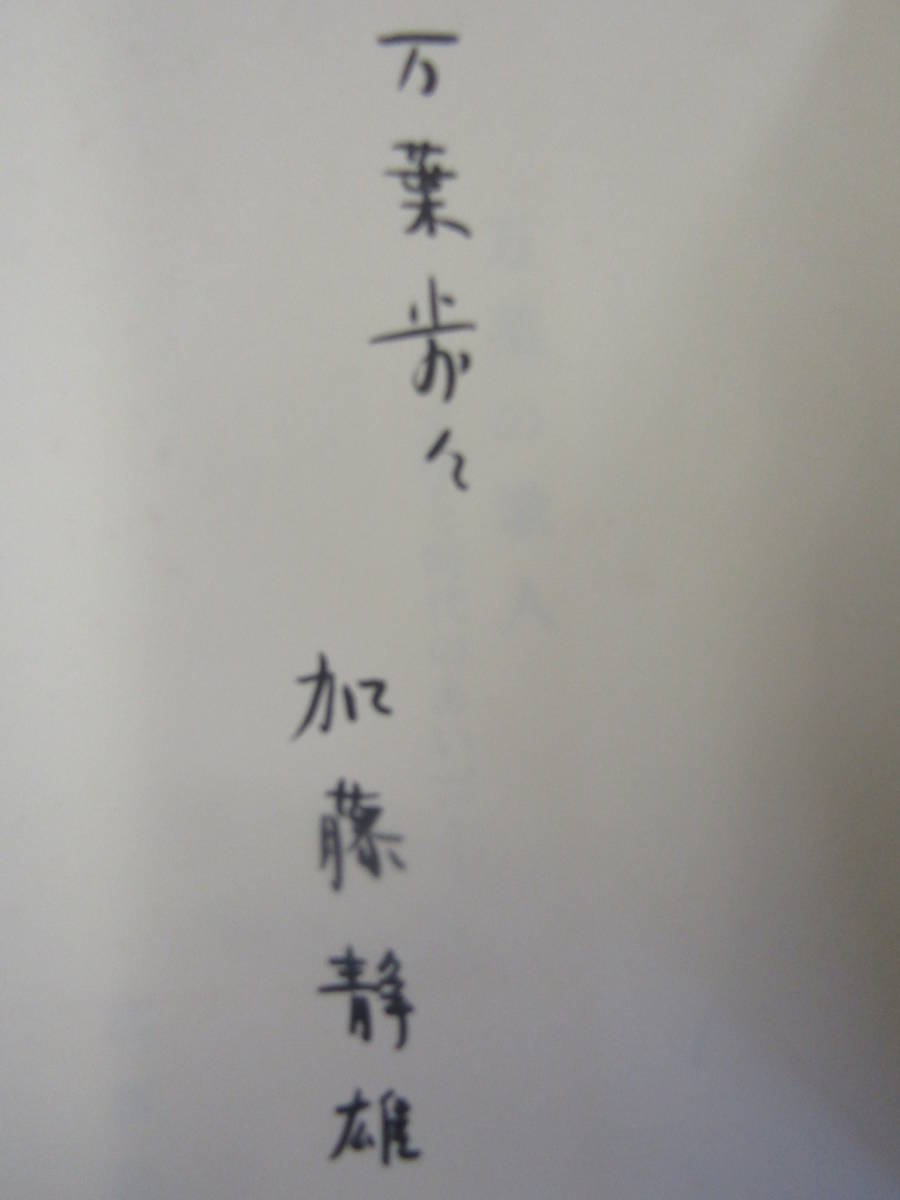 万葉歩々
加藤静雄